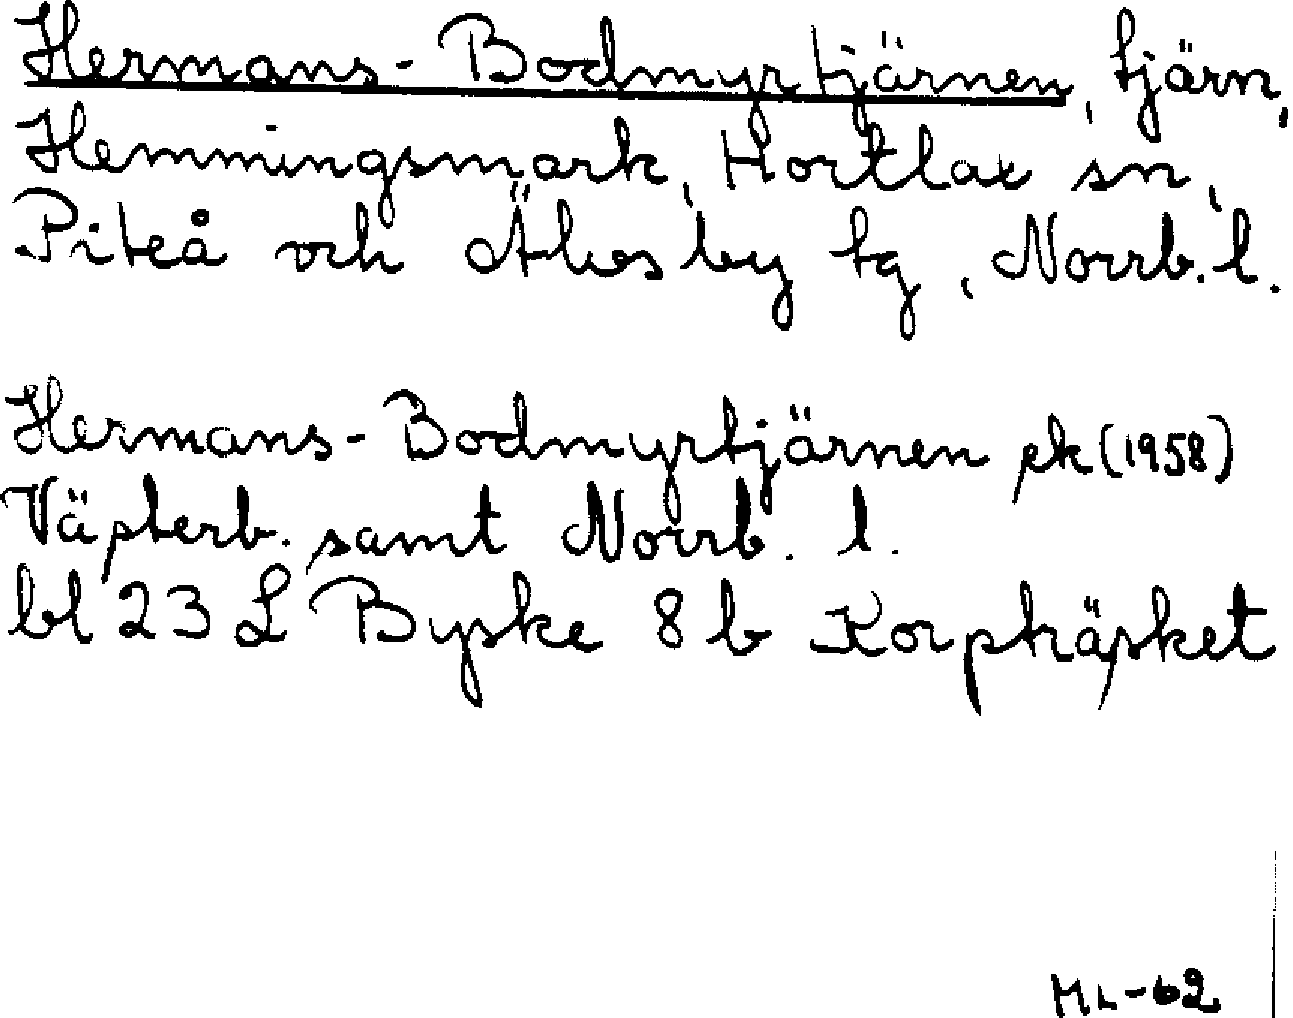 Hermans-Bodmyrtjärnen, tjärn,
Hemmingsmark, Hortlax sn,
Piteå och Älvsby tg, Norrb. l.
Hermans-Bodmyrtjärnen ek (1958)
Västerb. samt Norrb. l.
bl 23 L Byske 8 b Korpträsket
ML-62